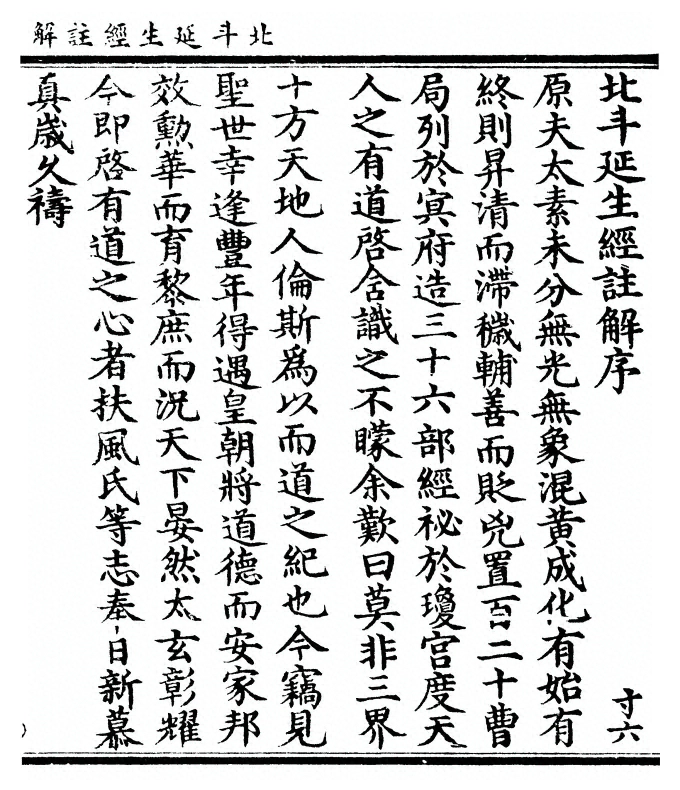 北斗延生經註解
北斗延生經註解序
寸六
原夫太素未分無光無象混黃成化有始有
終則昇清而滯穢輔善而貶兇置百二十曹
局列於冥府造三十六部經祕於瓊宮度天
人之有道啓含識之不矇余歎曰莫非三界
十方天地人倫斯爲以而道之紀也今竊見
聖世幸逢豐年得遇皇朝將道德而安家邦
效勳華而育黎庶而況天下晏然太玄彰耀
今即啓有道之心者扶風氏等志奉日新慕
真歲久禱